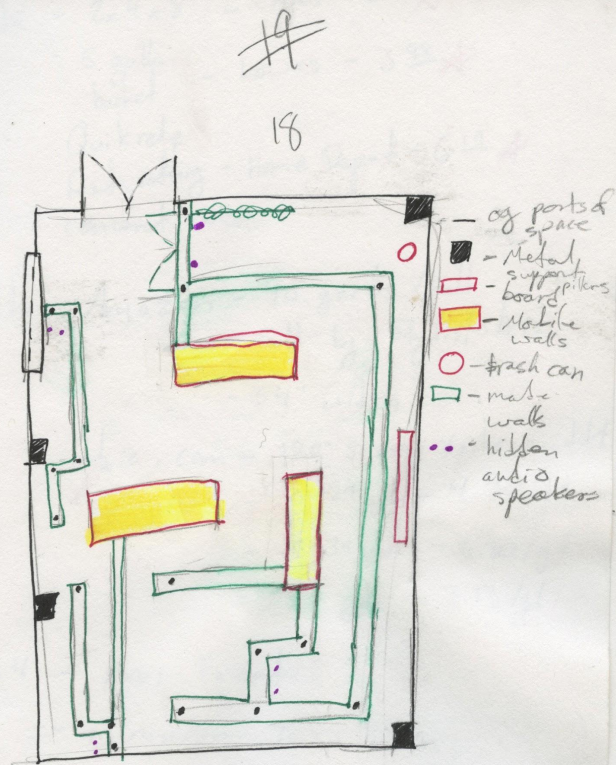 19
18
og parts of
space
- Metal
support
pillars
- board
- Mobile
walls
- trash can
- made
walls
- hidden
audio
speakers